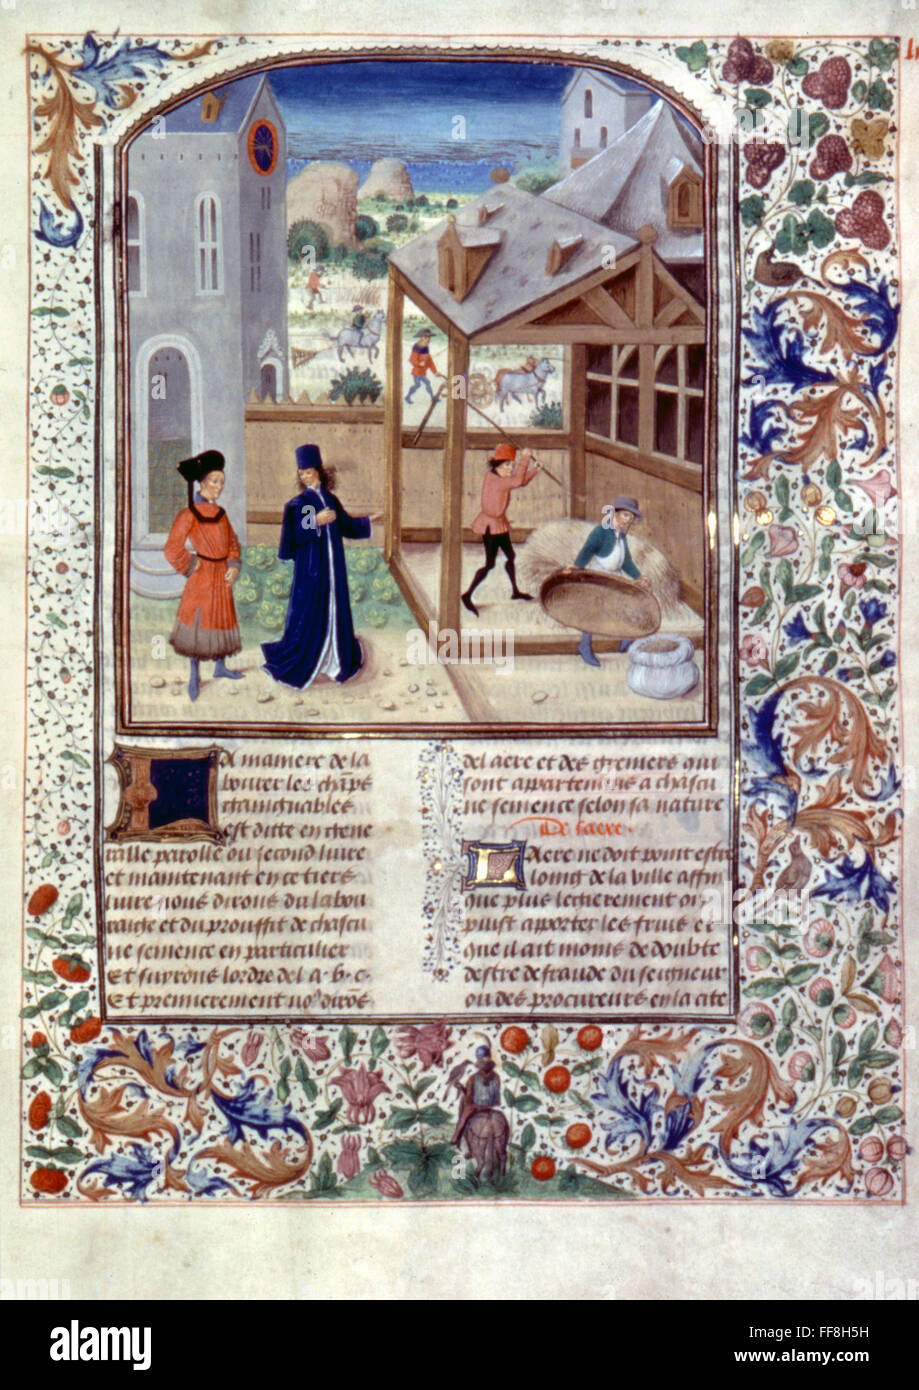 La maniere de la
bourer les chãps
gaingnables
est ditte en cheue
talle parolle ou second liure
et maintenant en ce tiers
liure nous dirons du labou
raige et du prouffit de chascu
ne semence en particulier
Et suyrons lordre del a · b · c ·
Et premierement no⁹ dirõs
del aere et des greniers qui
sont appartenans a chascu
ne semence selon sa nature
De laere ·
Laere ne doit point estre
loing de la ville affin
que plus legierement on
puist apporter les fruis et
que il ait moins de doubte
destre defraude du seigneur
ou des procureurs en la cite
alamy
Image ID: FF8H5H
www.alamy.com